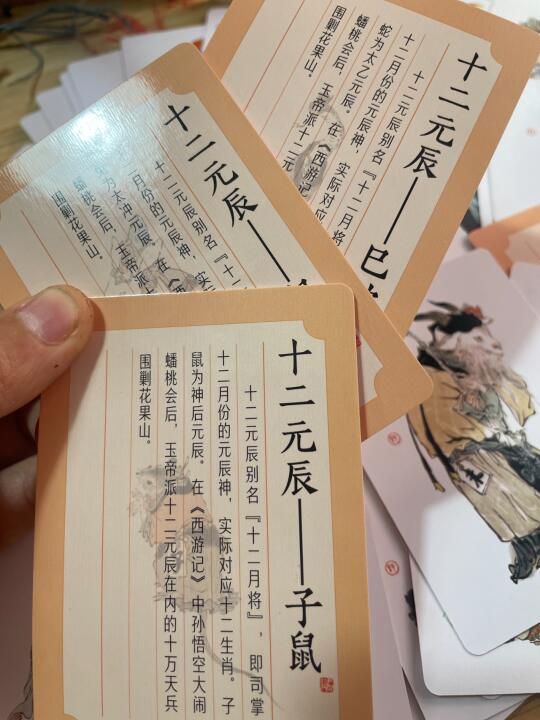 十二元辰——巳
十二元辰别名『十二月
十二月份的元辰神，实际对应
蛇为太乙元辰。在《西游记
蟠桃会后，玉帝派十二元
围剿花果山。
十二元辰——
十二元辰别名『十二
月份的元辰神，实
为太冲元辰。在《西
蟠桃会后，玉帝派十
围剿花果山。
十二元辰——子鼠
十二元辰别名『十二月将』，即司掌
十二月份的元辰神，实际对应十二生肖。子
鼠为神后元辰。在《西游记》中孙悟空大闹
蟠桃会后，玉帝派十二元辰在内的十万天兵
围剿花果山。